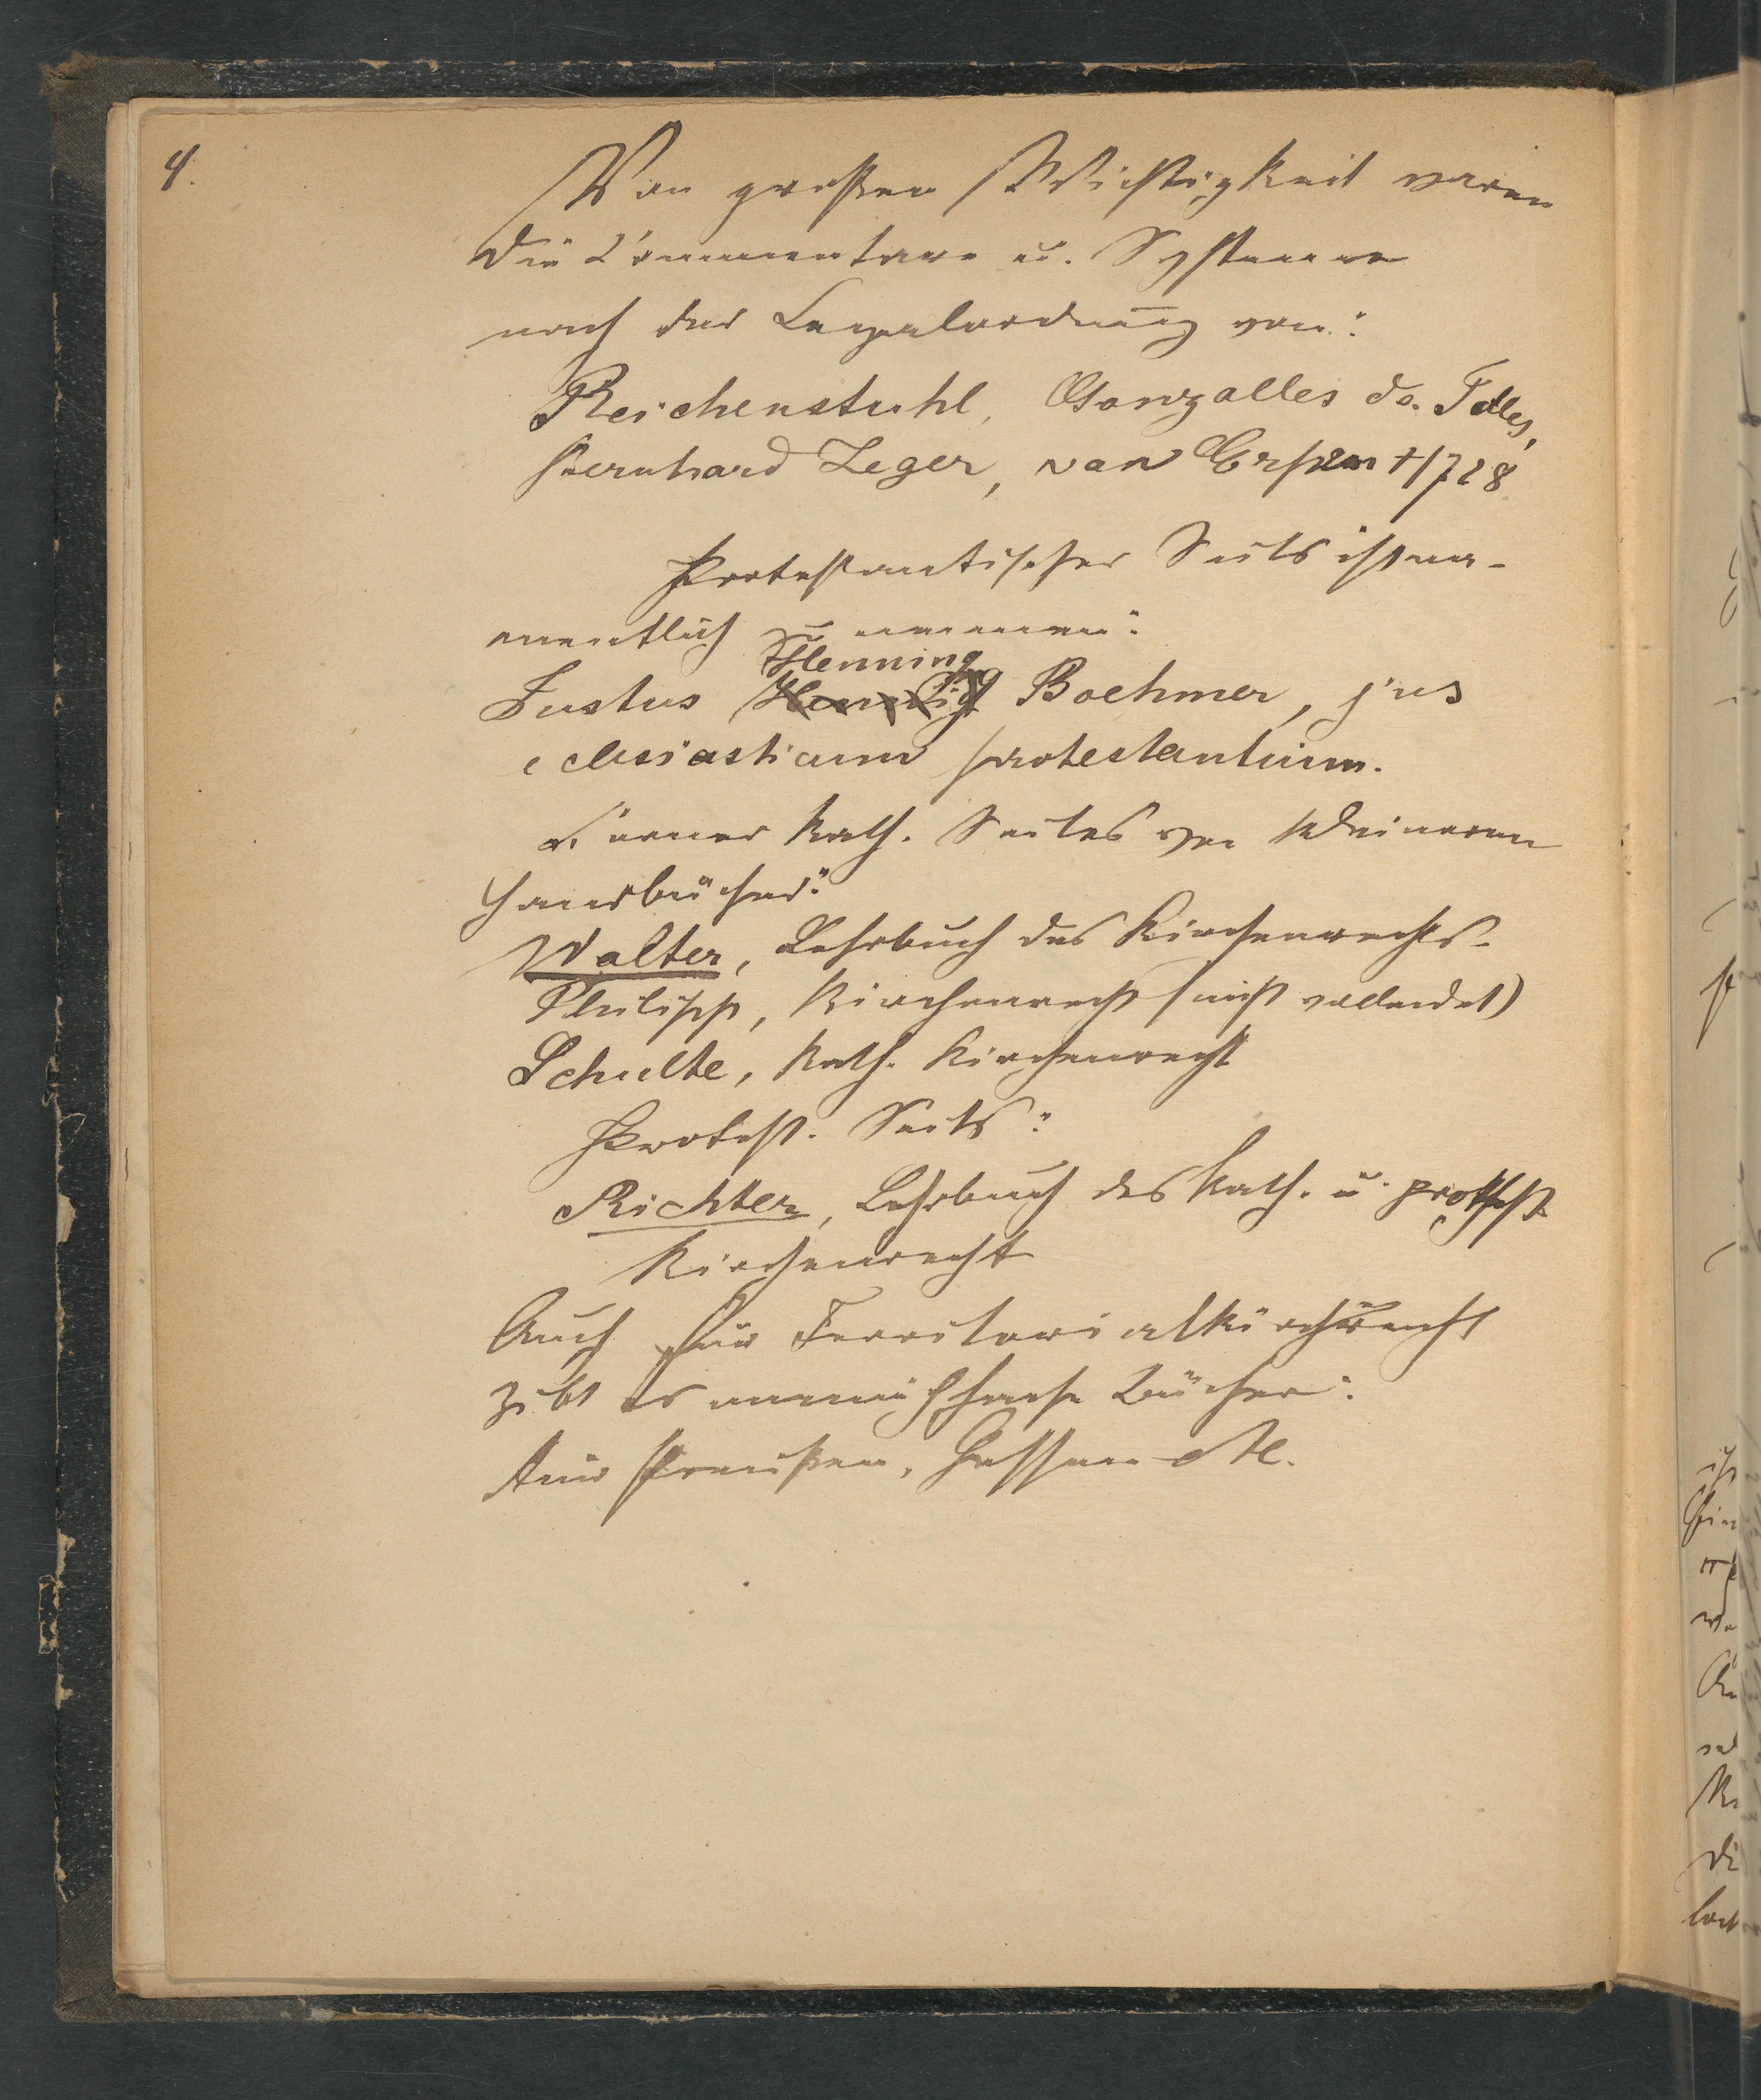 4.
Von großer Wichtigkeit waren
die Commentare u. Systeme
nach der Legalordnung von:
Reichenstuhl, Gonzalles do. Telles,
Bernhard Zeger, van Espen † 1728
Protestantischer Seits ist na-
mentlich zu nennen:
Henning
Justus Boehmer, jus
eclesiasticum protestantium.
Ferner kath. Seites von kleineren
Handbücher:
Walter, Lehrbuch des Kirchenrechts.
Philipp, Kirchenrecht (nicht vollendet)
Schulte, kath. Kirchenrecht
Protest. Seits:
Richter, Lehrbuch des kath. u. protest.
Kirchenrecht
Auch für Territorialkirchenrecht
gibt es Bücher:
für Preußen, Hessen etc.